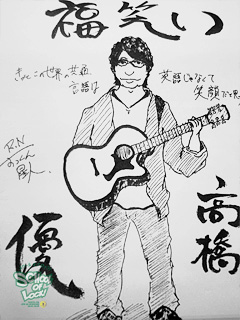 福笑い
きっとこの世界の共通
言語は
英語じゃなくて
笑顔だと思う
R.N
おっくん
高橋
優
SCHOOL
OF
LOCK!